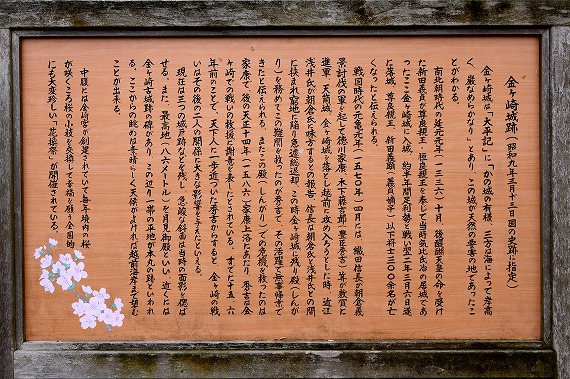 金ヶ崎城跡(昭和九年三月十三日国の史跡に指定)
金ヶ崎城は「太平記」に「かの城の有様、三方は海によって岸高
く、巌なめらかなり」とあり、この城が天然の要害の地であったこ
とがわかる。
南北朝時代の延元元年(一三三六)十月、後醍醐天皇の命を受け
た新田義貞が尊良親王・恒良親王を奉じて当時気比氏治の居城であ
ったここ金ヶ崎城に入城、約半年間足利勢と戦い翌二年三月六日遂
に落城、尊良親王、新田義顕(義貞嫡子)以下将士三〇〇余名が亡
くなったと伝えられる。
戦国時代の元亀元年(一五七〇年)四月には、織田信長が朝倉義
景討伐の軍を起して徳川家康、木下藤吉郎(豊臣秀吉)等が敦賀に
進軍、天筒城、金ヶ崎城を落とし越前に攻め入ろうとした時、近江
浅井氏が朝倉氏に味方するとの報告、信長は朝倉氏と浅井氏との間
に挟まれ窮地に陥り急遽総退却、この時金ヶ崎城に残り殿(しんが
り)を務めてこの難関を救ったのが秀吉で、その活躍で無事帰京で
きたと伝えられる。またこの殿(しんがり)での危機を救ったのは
家康で、後の天正十四年(一五八六)家康上洛にあたり、秀吉は金
ヶ崎での戦いの救援に謝意を表したとされている。すでに十五、六
年前のことで、天下人に一歩近づいた秀吉からすると、金ヶ崎の戦
いはその後の二人の関係に大きな影響を与えたといえる。
現在は三つの城戸跡などを残し、急峻な斜面は当時の面影を偲ば
せる。また、最高地(八六メートル)を月見御殿といい、近くは
金ヶ崎古城跡の碑があり、この辺り一帯の平地が本丸の跡といわれ
る。ここからの眺めは素晴らしく天候がよければ越前海岸まで望む
ことが出来る。
中腹には金崎宮が創建されていて毎年境内の桜
が咲くころ桜の小枝を交換して幸福を願う全国的
にも大変珍しい「花換祭」が開催されている。